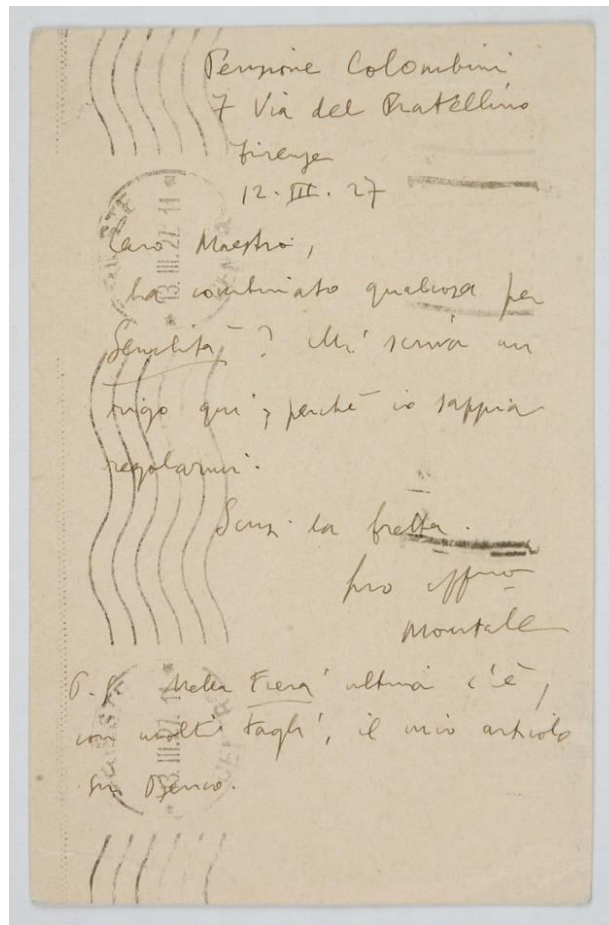 Pensione Colombini
7 Via del Pratellino
Firenze
12. III. 27
Caro Maestro,
ha combinato qualcosa per
Senilità? Mi scriva un
rigo qui, perché io sappia
regolarmi.
Scusi la fretta.
suo affmo
Montale
P. S. Nella Fiera ultima c'è,
con molti tagli, il mio articolo
su Benco.
13. III. 27. 11
13. III. 27. 11